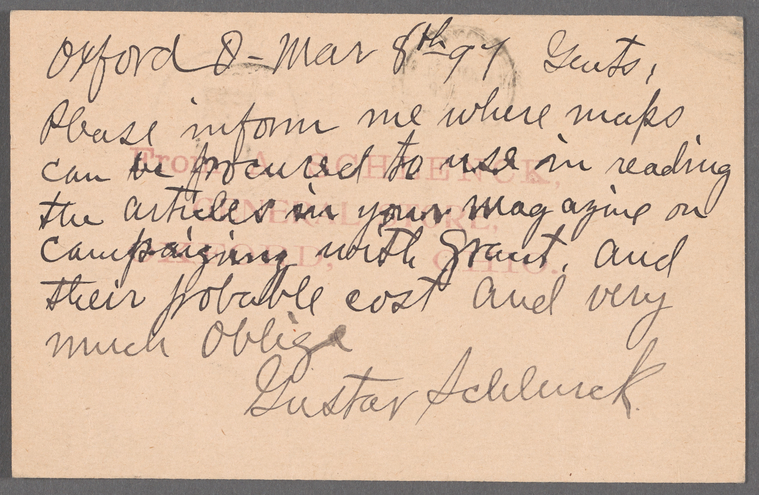 Oxford O - Mar 8th 97 Gents,
Please inform me where maps
can be procured to use in reading
the articles in your magazine on
campaigning with Grant, and
their probable cost and very
much oblige
Gustav Schlenck.
From A. SCHLENCK,
GENERAL STORE,
OXFORD, OHIO.